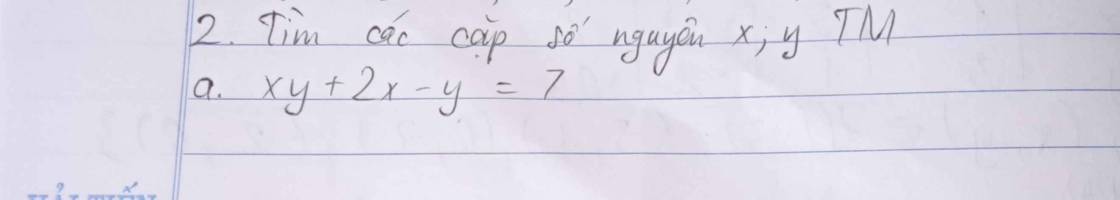 2. Tìm các cặp số nguyên x; y TM
a. xy + 2x - y = 7
HẢI TIẾN